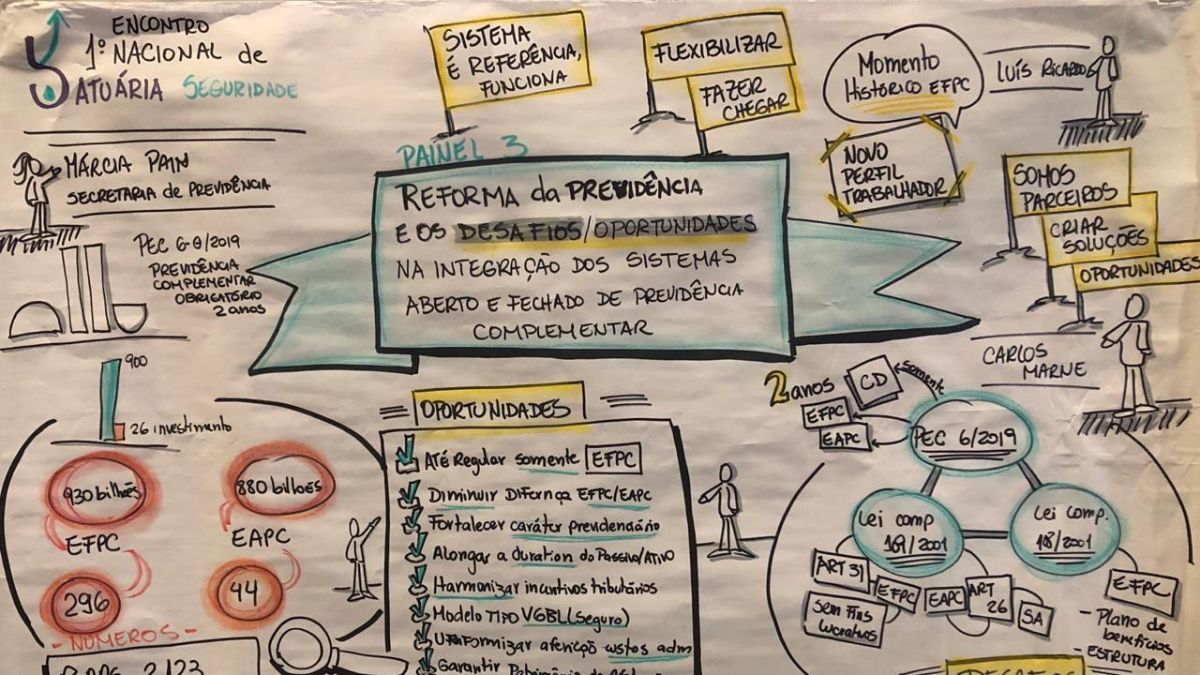 ENCONTRO
1º NACIONAL de
ATUÁRIA SEGURIDADE
MÁRCIA PAIM
SECRETARIA de PREVIDÊNCIA
PEC 6-8/2019
PREVIDÊNCIA
COMPLEMENTAR
OBRIGATÓRIO
2 anos
SISTEMA
É REFERÊNCIA,
FUNCIONA
FLEXIBILIZAR
FAZER
CHEGAR
Momento
Histórico EFPC
LUÍS RICARDO
NOVO
PERFIL
TRABALHADOR
SOMOS
PARCEIROS
CRIAR
SOLUÇÕES
OPORTUNIDADES
CARLOS
MARNE
PAINEL 3
REFORMA da PREVIDÊNCIA
E OS DESAFIOS/OPORTUNIDADES
NA INTEGRAÇÃO DOS SISTEMAS
ABERTO E FECHADO DE PREVIDÊNCIA
COMPLEMENTAR
900
26 investimento
930 bilhões
EFPC
296
880 bilhões
EAPC
44
- NÚMEROS -
2/23
OPORTUNIDADES
ATÉ Regular somente EFPC
Diminuir DIFERNÇA EFPC/EAPC
Fortalecer caráter previdenciário
Alongar a duration do Passivo/ATIVO
Harmonizar incentivos tributários
Modelo TIPO VGBL (Seguro)
Uniformizar aferição custos adm
Garantir
2 anos
CD
somente
EFPC
EAPC
PEC 6/2019
Lei comp
109/2001
Lei comp.
108/2001
ART 31
EFPC
Sem Fins
lucrativos
EAPC
ART
26
SA
EFPC
- Plano de
benefícios
- ESTRUTURA